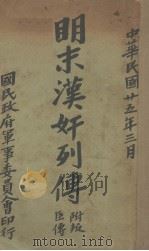 中華民國廿五年三月
明末漢奸列傳
附叛臣傳
國民政府軍事委員會印行